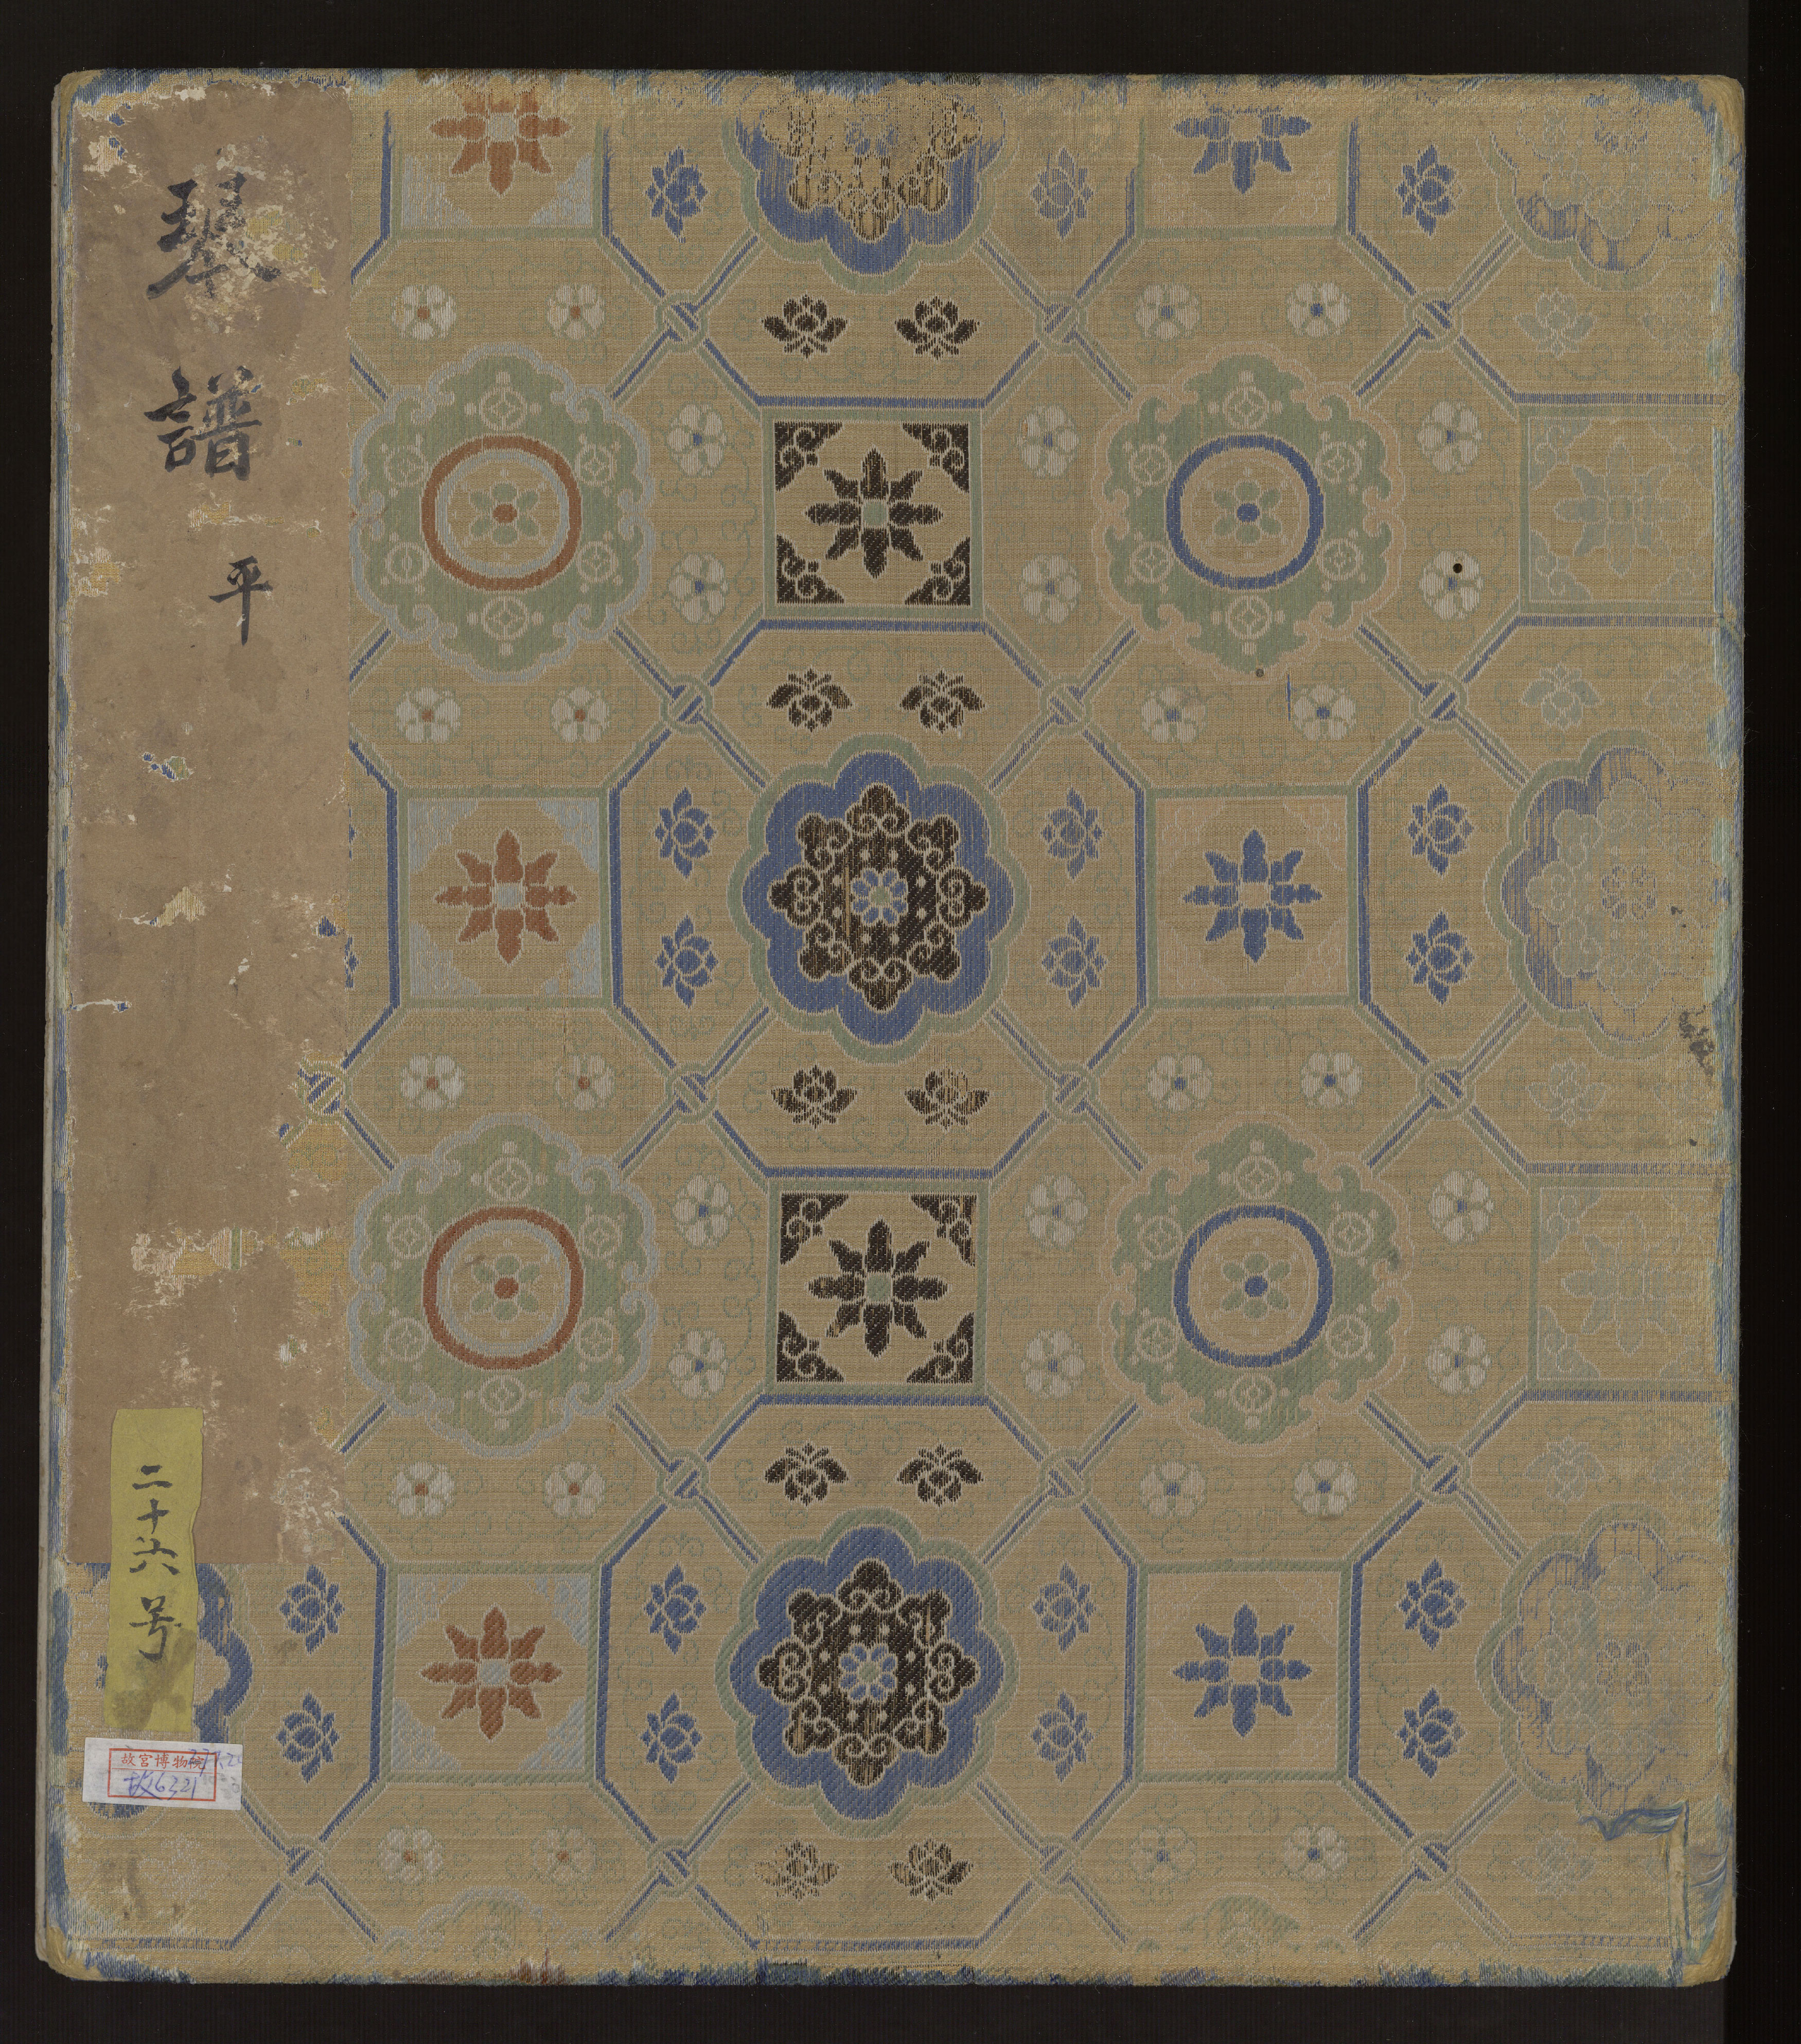 琴譜
平
二十六号
故宫博物院
故6321